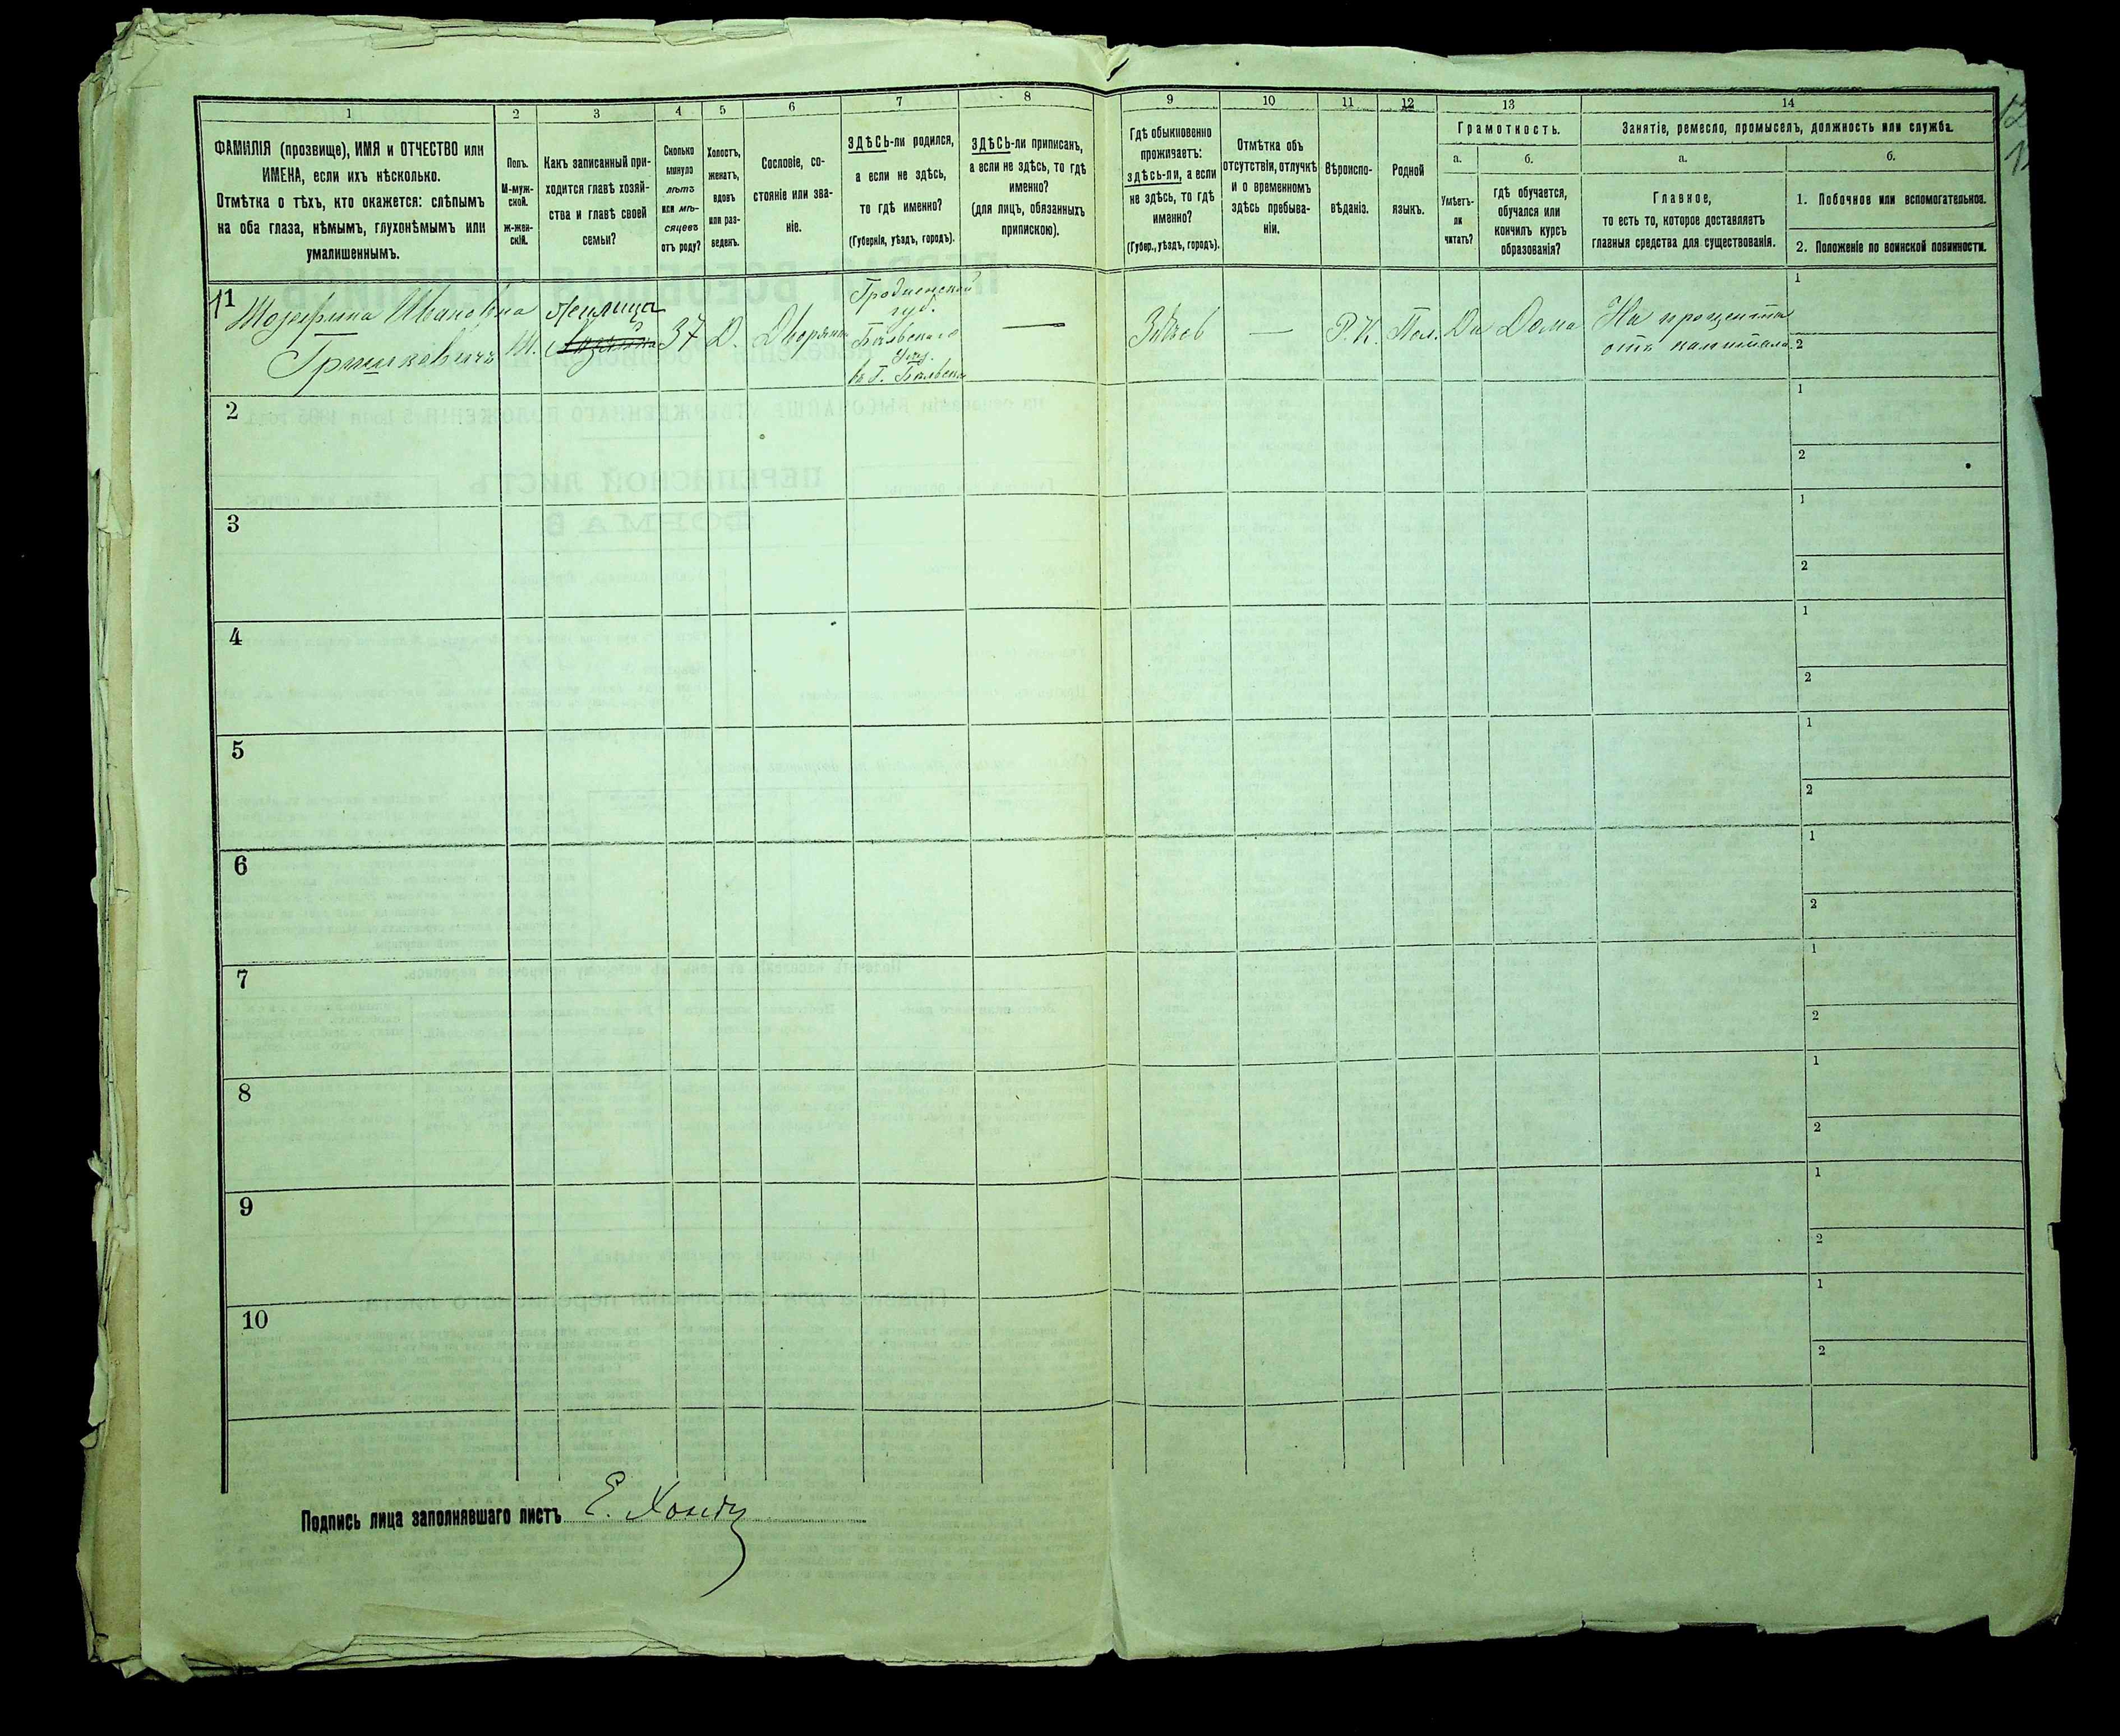 1
2
3
4
5
6
7
8
9
10
11
12
13
14
ФАМИЛІЯ (прозвище), ИМЯ и ОТЧЕСТВО или
ИМЕНА, если ихъ нѣсколько.
Отмѣтка о тѣхъ, кто окажется: слѣпымъ
на оба глаза, нѣмымъ, глухонѣмымъ или
умалишеннымъ.
Полъ.
М-муж-
ской.
Ж-жен-
скій.
Какъ записанный при-
ходится главѣ хозяй-
ства и главѣ своей
семьи?
Сколько
минуло
лѣтъ
или мѣ-
сяцевъ
отъ роду?
Холостъ,
женатъ,
вдовъ
или раз-
веденъ.
Сословіе, со-
стояніе или зва-
ніе.
ЗДѢСЬ-ли родился,
а если не здѣсь,
то гдѣ именно?
(Губернія, уѣздъ, городъ).
ЗДѢСЬ-ли приписанъ,
а если не здѣсь, то гдѣ
именно?
(для лицъ, обязанныхъ
припискою).
Гдѣ обыкновенно
проживаетъ:
здѣсь-ли, а если
не здѣсь, то гдѣ
именно?
(Губер., уѣздъ, городъ).
Отмѣтка объ
отсутствіи, отлучкѣ
и о временномъ
здѣсь пребыва-
ніи.
Вѣроиспо-
вѣданіе.
Родной
языкъ.
Грамотность.
а.
б.
Умѣетъ-
ли
читать?
гдѣ обучается,
обучался или
кончилъ курсъ
образованія?
Занятіе, ремесло, промыселъ, должность или служба.
а.
б.
Главное,
то есть то, которое доставляетъ
главныя средства для существованія.
1. Побочное или вспомогательное.
2. Положеніе по воинской повинности.
1
Жозефина Ивановна
Гришкевичъ
Ж.
Жилица
37
Д.
Дворянка
Гродненской
губ.
Бѣльскаго
уѣзд.
въ г. Бѣльскѣ
—
Здѣсь
—
Р. К.
Пол.
Да
Дома
На проценты
отъ капитала
1
2
2
1
2
3
1
2
4
1
2
5
1
2
6
1
2
7
1
2
8
1
2
9
1
2
10
1
2
Подпись лица заполнявшаго листъ
Е.